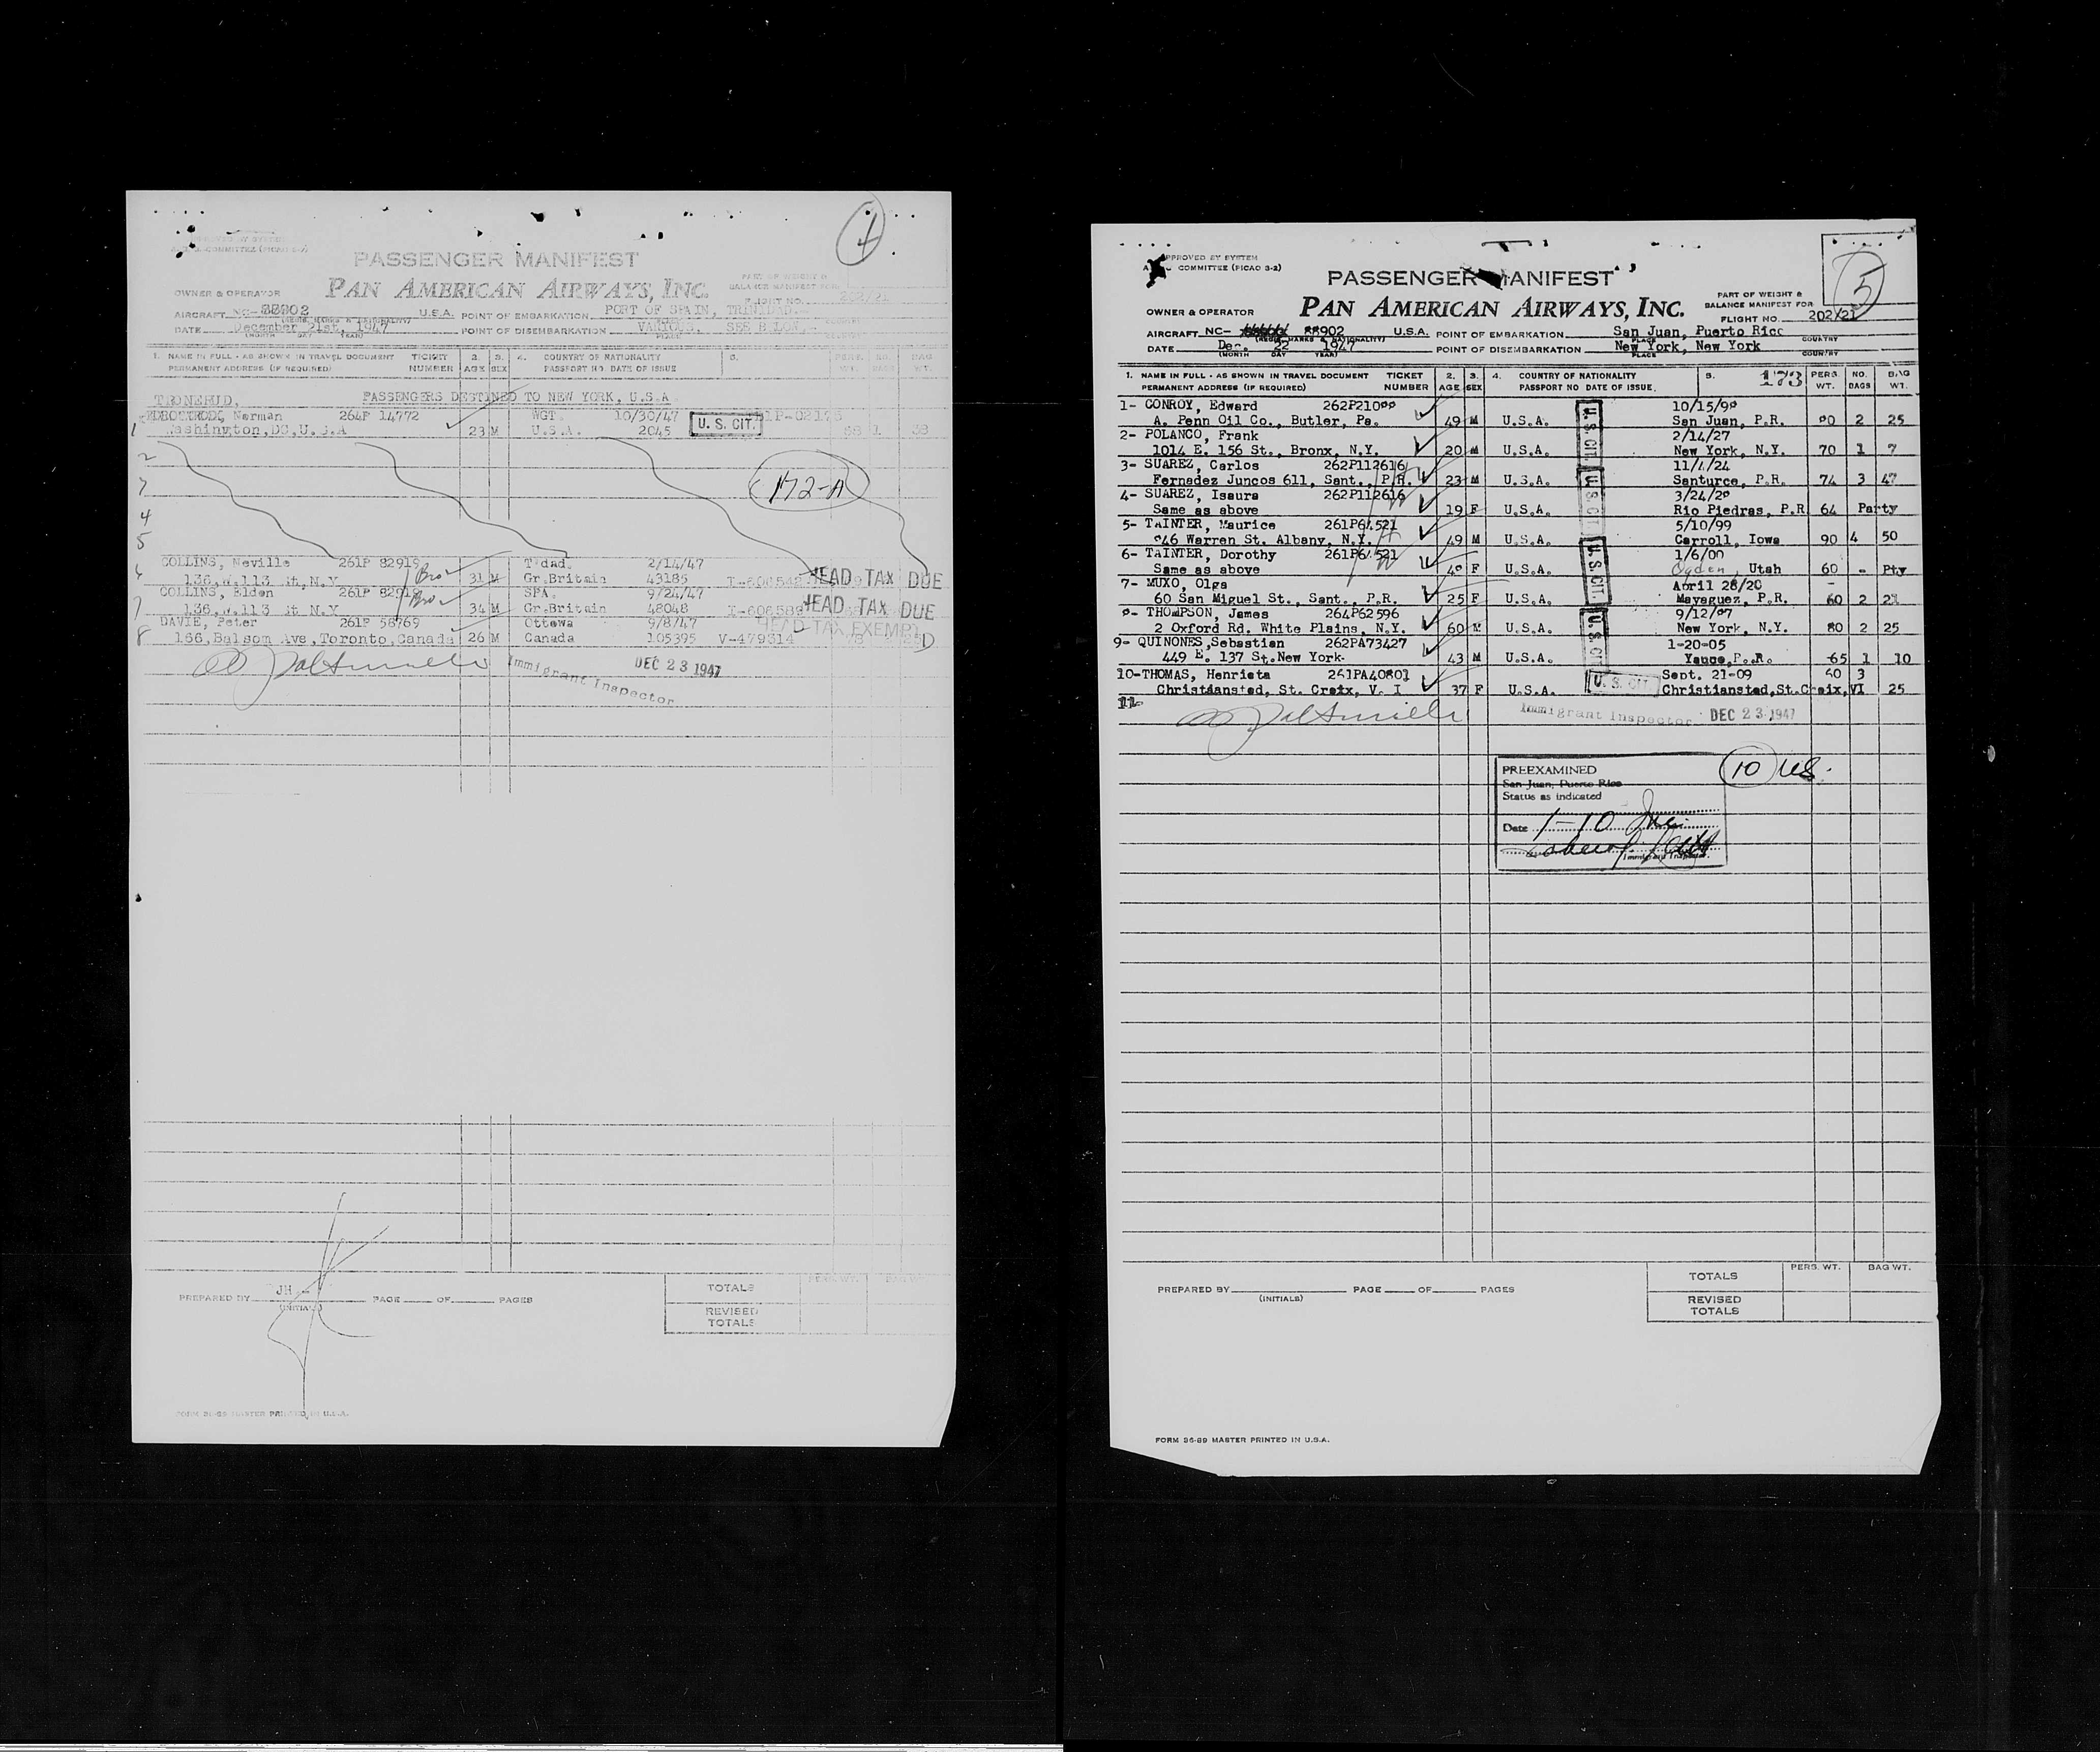 4
APPROVED BY SYSTEM
COMMITTEE (PICAO 3-2)
PASSENGER MANIFEST
PAN AMERICAN AIRWAYS, INC.
PART OF WEIGHT &
BALANCE MANIFEST FOR
FLIGHT NO. 202/21
OWNER & OPERATOR
AIRCRAFT NC- 88902 U.S.A. POINT OF EMBARKATION PORT OF SPAIN, TRINIDAD.
DATE December 21st, 1947 POINT OF DISEMBARKATION VARIOUS, SEE BELOW,
1. NAME IN FULL - AS SHOWN IN TRAVEL DOCUMENT TICKET 2. 3. 4. COUNTRY OF NATIONALITY 5. PERS. NO. BAG
PERMANENT ADDRESS (IF REQUIRED) NUMBER AGE SEX PASSPORT NO. DATE OF ISSUE WT. BAGS WT.
PASSENGERS DESTINED TO NEW YORK, U.S.A
TRONERUD,
Norman 264P 14772 WGT. 10/30/47
1 Washington,DC,U.S.A 23 M U.S.A. 2045 U. S. CIT. 1 38
2
3
172-A
4
5
COLLINS, Neville 261P 82919 Bro T'dad. 2/14/47
136,W.113 St,N.Y 31 M Gr.Britain 43185 HEAD TAX DUE
COLLINS, Elden 261P 82919 Bro SPA. 9/24/47
7 136,W.113 St,N.Y 34 M Gr.Britain 48048 HEAD TAX DUE
DAVIE, Peter 261P 58769 Ottawa 9/8/47 HEAD TAX EXEMPT
8 166,Balsom Ave,Toronto,Canada 26 M Canada 105395 V-479614
Immigrant Inspector DEC 23 1947
JH
PREPARED BY (INITIALS) PAGE OF PAGES
TOTALS PERS. WT. BAG WT.
REVISED
TOTALS
FORM 36-89 MASTER PRINTED IN U.S.A.
5
APPROVED BY SYSTEM
COMMITTEE (PICAO 3-2)
PASSENGER MANIFEST
PAN AMERICAN AIRWAYS, INC.
PART OF WEIGHT &
BALANCE MANIFEST FOR
FLIGHT NO. 202/21
OWNER & OPERATOR
AIRCRAFT NC- 88902 U.S.A. POINT OF EMBARKATION San Juan, Puerto Rico
(REGIS. MARKS & NATIONALITY) PLACE COUNTRY
DATE Dec. 22 1947 POINT OF DISEMBARKATION New York, New York
(MONTH DAY YEAR) PLACE COUNTRY
1. NAME IN FULL - AS SHOWN IN TRAVEL DOCUMENT TICKET 2. 3. 4. COUNTRY OF NATIONALITY 5. 173 PERS. NO. BAG
PERMANENT ADDRESS (IF REQUIRED) NUMBER AGE SEX PASSPORT NO DATE OF ISSUE. WT. BAGS WT.
1- CONROY, Edward 262P210 10/15/9
A. Penn Oil Co., Butler, Pa. 49 M U.S.A. U.S. CIT. San Juan, P.R. 2 25
2- POLANCO, Frank 2/14/27
1014 E. 156 St., Bronx, N.Y. 20 M U.S.A. New York, N.Y. 70 1 7
3- SUAREZ, Carlos 262P112616 11/4/24
Fernadez Juncos 611, Sant., P.R. 23 M U.S.A. U.S. CIT. Santurce, P.R. 74 3 47
4- SUAREZ, Isaura 262P112616 3/24/28
Same as above 19 F U.S.A. Rio Piedras, P.R 64 Party
5- TAINTER, Maurice 261P64521 5/10/99
46 Warren St. Albany, N.Y. 49 M U.S.A. Carroll, Iowa 90 4 50
6- TAINTER, Dorothy 261P64521 1/6/00
Same as above F U.S.A. U.S. CIT. Ogden, Utah 60 - Pty
7- MUXO, Olga April 28/20 -
60 San Miguel St., Sant., P.R. 25 F U.S.A. Mayaguez, P.R. 60 2 21
8- THOMPSON, James 264P62596 9/12/87
2 Oxford Rd. White Plains, N.Y. 60 M U.S.A. U.S. CIT New York, N.Y. 80 2 25
9- QUINONES,Sebastian 262PA73427 1-20-05
449 E. 137 St.New York- 43 M U.S.A. Yauco,P.R. 65 1 10
10-THOMAS, Henrieta 261PA40801 Sept. 21-09 60 3
Christiansted, St. Croix, V. I 37 F U.S.A. U. S. CIT. Christiansted,St.Croix,VI 25
11-
Immigrant Inspector DEC 23 1947
PREEXAMINED
San Juan, Puerto Rico
Status as indicated
Date 1-10
Immigrant Inspector.
10 US.
PREPARED BY (INITIALS) PAGE OF PAGES
TOTALS PERS. WT. BAG WT.
REVISED
TOTALS
FORM 36-89 MASTER PRINTED IN U.S.A.